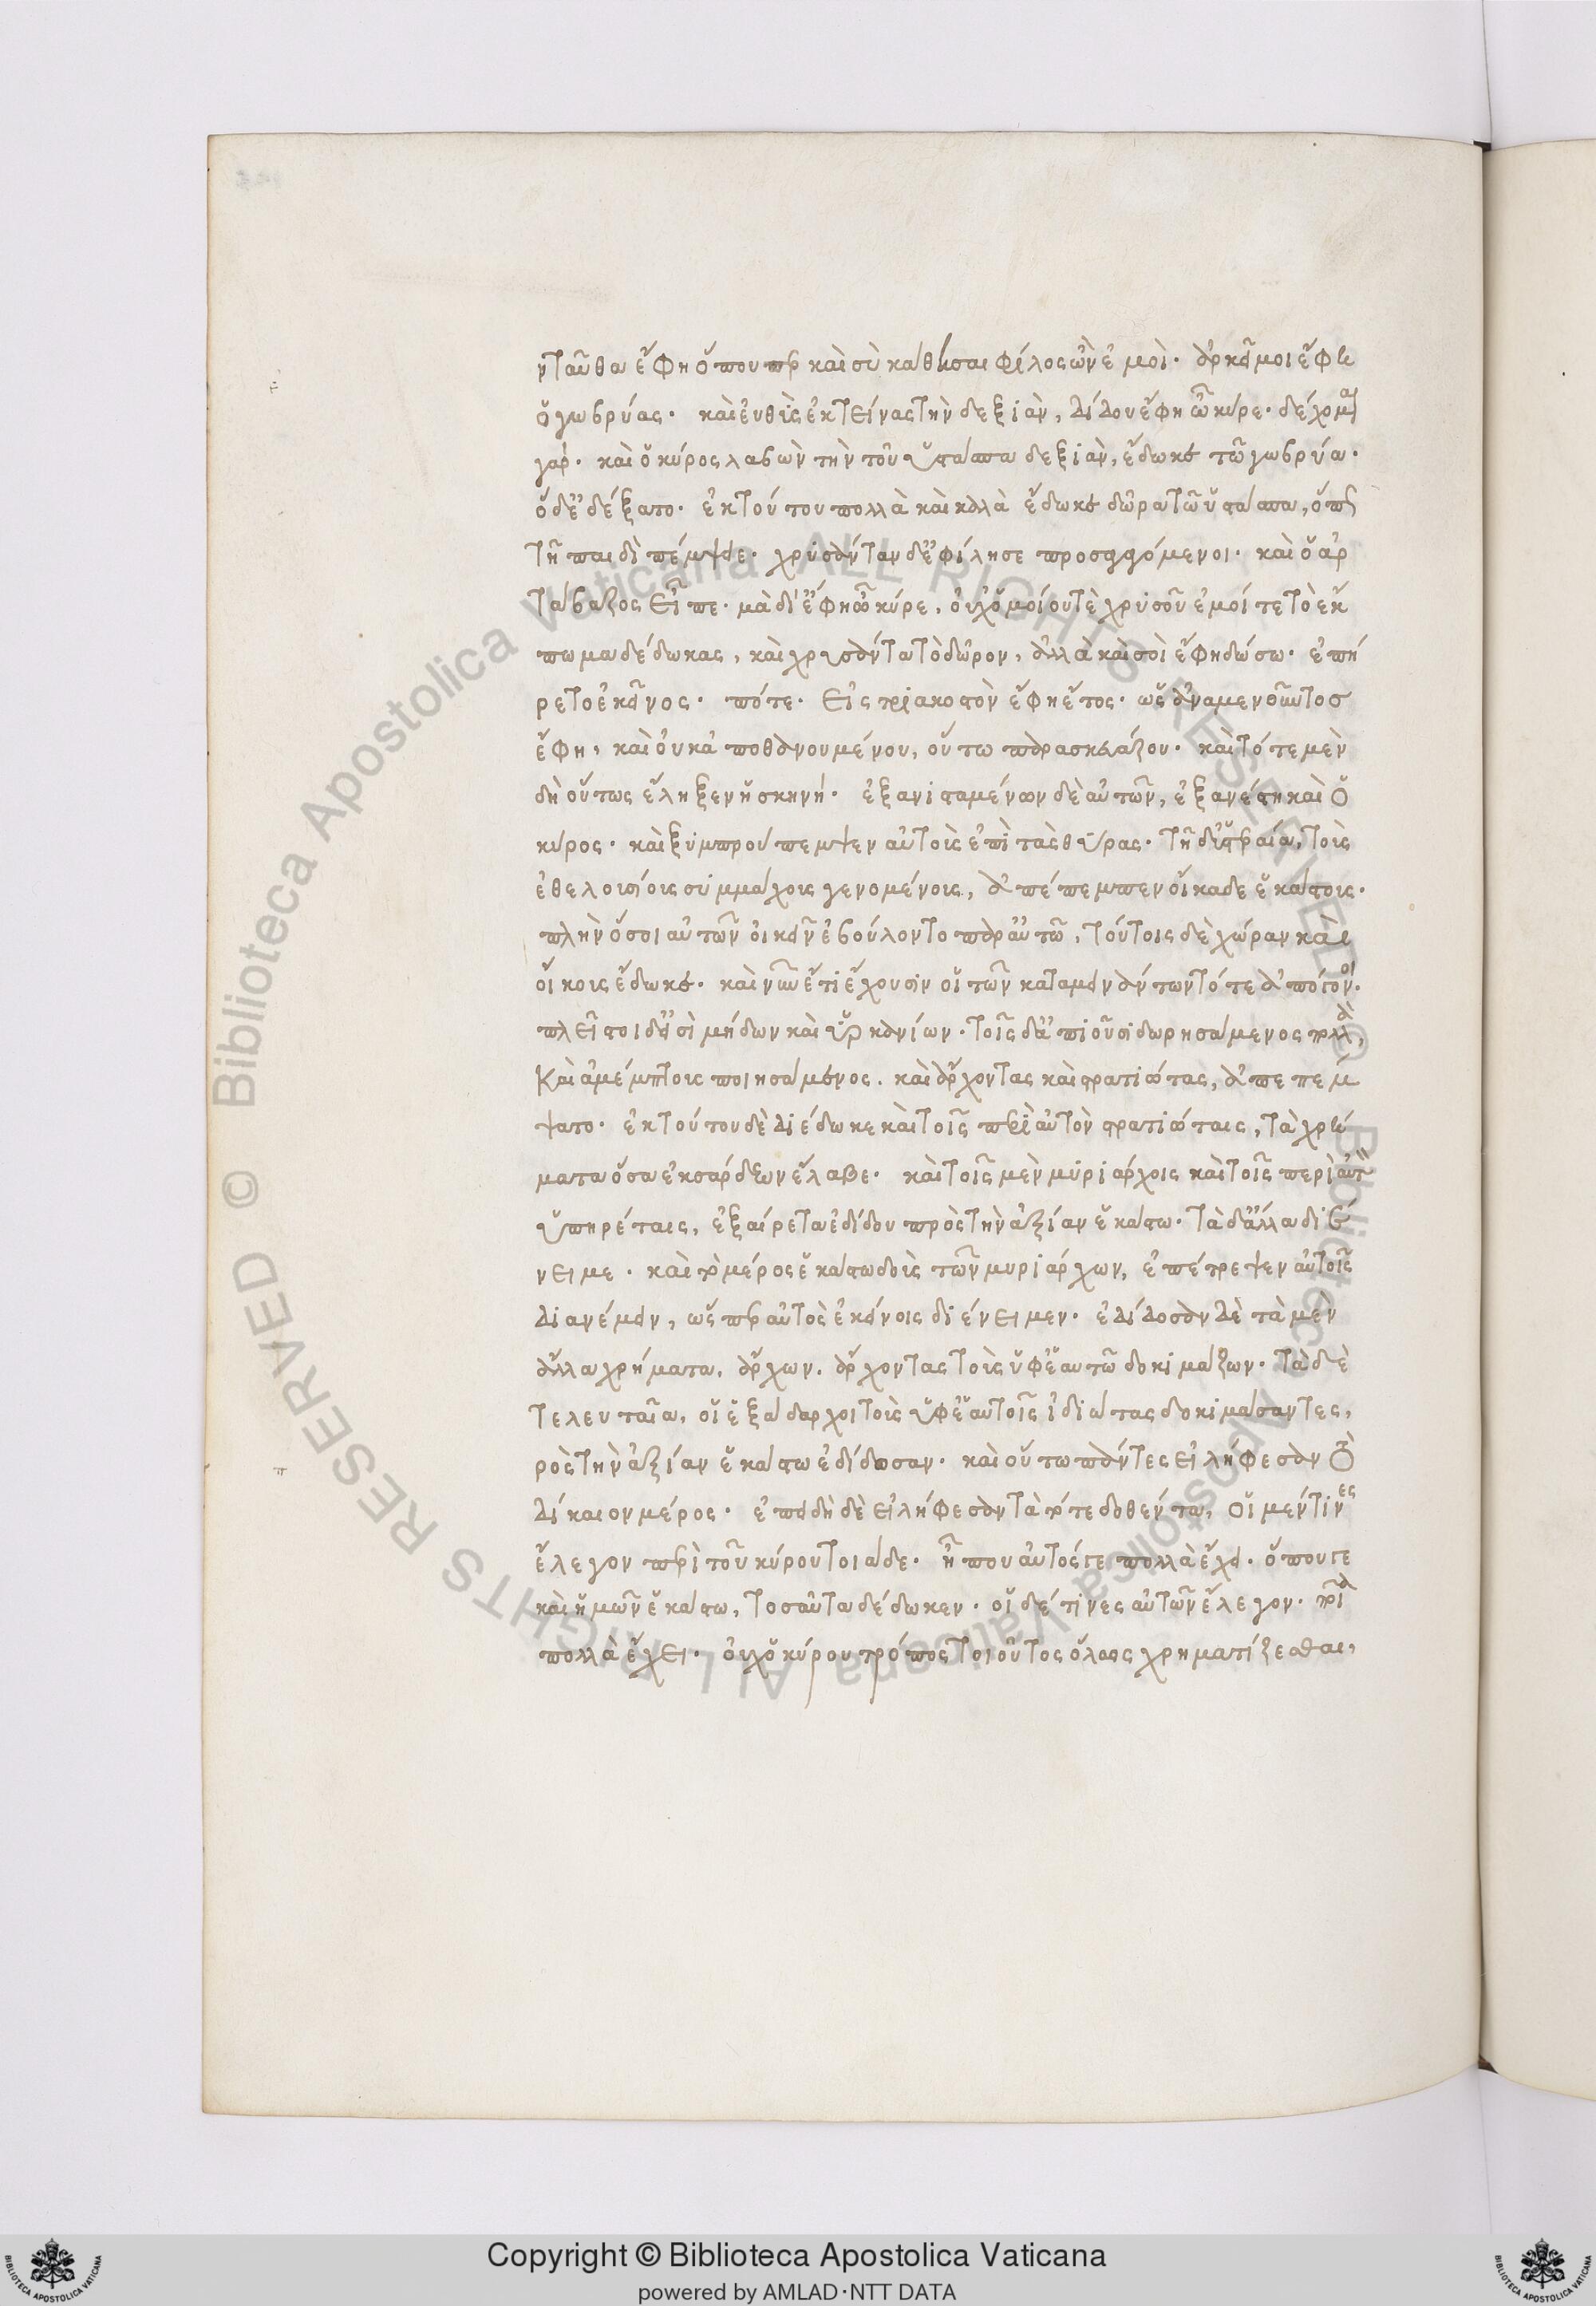 νταῦθα ἔφη ὅπουπερ καὶ σὺ κάθησαι φίλος ὢν ἐμοὶ. ἀρκεῖ μοι ἔφη
ὁ γωβρύας. καὶ εὐθὺς ἐκτείνας τὴν δεξιὰν, δίδου ἔφη ὦ κῦρε. δέχομαι
γάρ. καὶ ὁ κύρος λαβὼν τὴν τοῦ ὑστάσπα δεξιὰν, ἔδωκε τῶ γωβρύα.
ὁ δ' ἐδέξατο. ἐκ τούτου πολλὰ καὶ καλὰ ἔδωκε δῶρα τῶ ὑστάσπα, ὅπως
τῆ παιδὶ πέμψειε. χρυσάνταν δ' ἐφίλησε προσαγόμενοι. καὶ ὁ ἀρ
τάβαζος εἶπε. μὰ δί' ἔφη ὦ κύρε, οὐχ ὁμοίου τὲ χρυσοῦ ἐμοί τε τὸ ἔκ
πωμα δέδωκας, καὶ χρυσάντα τὸ δῶρον, ἀλλὰ καὶ σοὶ ἔφη δώσω. ἐπή
ρετο ἐκεῖνος. πότε. εἰς τριακοστὸν ἔφη ἔτος. ὡς ἀναμενοῦντοσ
ἔφη, καὶ οὐκ ἀποθανουμένου, οὕτω παρασκευάζου. καὶ τότε μὲν
δὴ οὕτως ἔληξεν ἡ σκηνή. ἐξανισταμένων δὲ αὐτῶν, ἐξανέστη καὶ ὁ
κυρος. καὶ ξυμπρούπεμψεν αὐτοὺς ἐπὶ τὰς θύρας. τῆ δ' ὑστεραία, τοὺς
ἐθελουσίους συμμάχους γενομένους, ἀπέπεμπεν οἴκαδε ἑκάστους.
πλὴν ὅσοι αὐτῶν οἰκεῖν ἐβούλοντο παρ' αὐτῶ, τούτοις δὲ χώραν καὶ
οἴκους ἔδωκε. καὶ νῦν ἔτι ἔχουσιν οἱ τῶν καταμεινάντων τότε ἀπόγονοι.
πλεῖστοι δ' εἰσὶ μήδων καὶ ὑρκανίων. τοῖς δ' ἀπιοῦσι δωρησάμενος πολλὰ,
καὶ ἀμέμπτους ποιησάμενος. καὶ ἄρχοντας καὶ στρατιώτας, ἀπεπέμ
ψατο. ἐκ τούτου δὲ διέδωκε καὶ τοῖς περὶ αὐτὸν στρατιώταις, τὰ χρή
ματα ὅσα ἐκ σάρδεων ἔλαβε. καὶ τοῖς μὲν μυριάρχοις καὶ τοῖς περὶ αὐτὸν
ὑπηρέταις, ἐξαίρετα ἐδίδου πρὸς τὴν ἀξίαν ἑκάστω. τὰ δ' ἄλλα διέ
νειμε. καὶ τὸ μέρος ἑκάστω δοὺς τῶν μυριάρχων, ἐπέτρεψεν αὐτοῖς
διανέμειν, ὥσπερ αὐτὸς ἐκείνοις διένειμεν. ἐδίδοσαν δὲ τὰ μὲν
ἄλλα χρήματα, ἄρχων. ἄρχοντας τοὺς ὑφ' ἑαυτῶ δοκιμάζων. τὰ δὲ
τελευταῖα, οἱ ἑξάδαρχοι τοὺς ὑφ' ἑαυτοῖς ἰδιώτας δοκιμάσαντες,
ρὸς τὴν ἀξίαν ἑκάστω ἐδίδοσαν. καὶ οὕτω πάντες εἰλήφεσαν τὸ
δίκαιον μέρος. ἐπειδὴ δὲ εἰλήφεσαν τὰ τότε δοθέντα, οἱ μέν τινες
ἔλεγον περὶ τοῦ κύρου τοιάδε. ἦ που αὐτός γε πολλὰ ἔχει. ὅπου γε
καὶ ἡμῶν ἑκάστω, τοσαῦτα δέδωκεν. οἱ δέ τινες αὐτῶν ἔλεγον. ποῖα
πολλὰ ἔχει. οὐχ ὁ κύρου τρόπος τοιοῦτος ὅλως χρηματίζεσθαι,
Copyright © Biblioteca Apostolica Vaticana
powered by AMLAD·NTT DATA